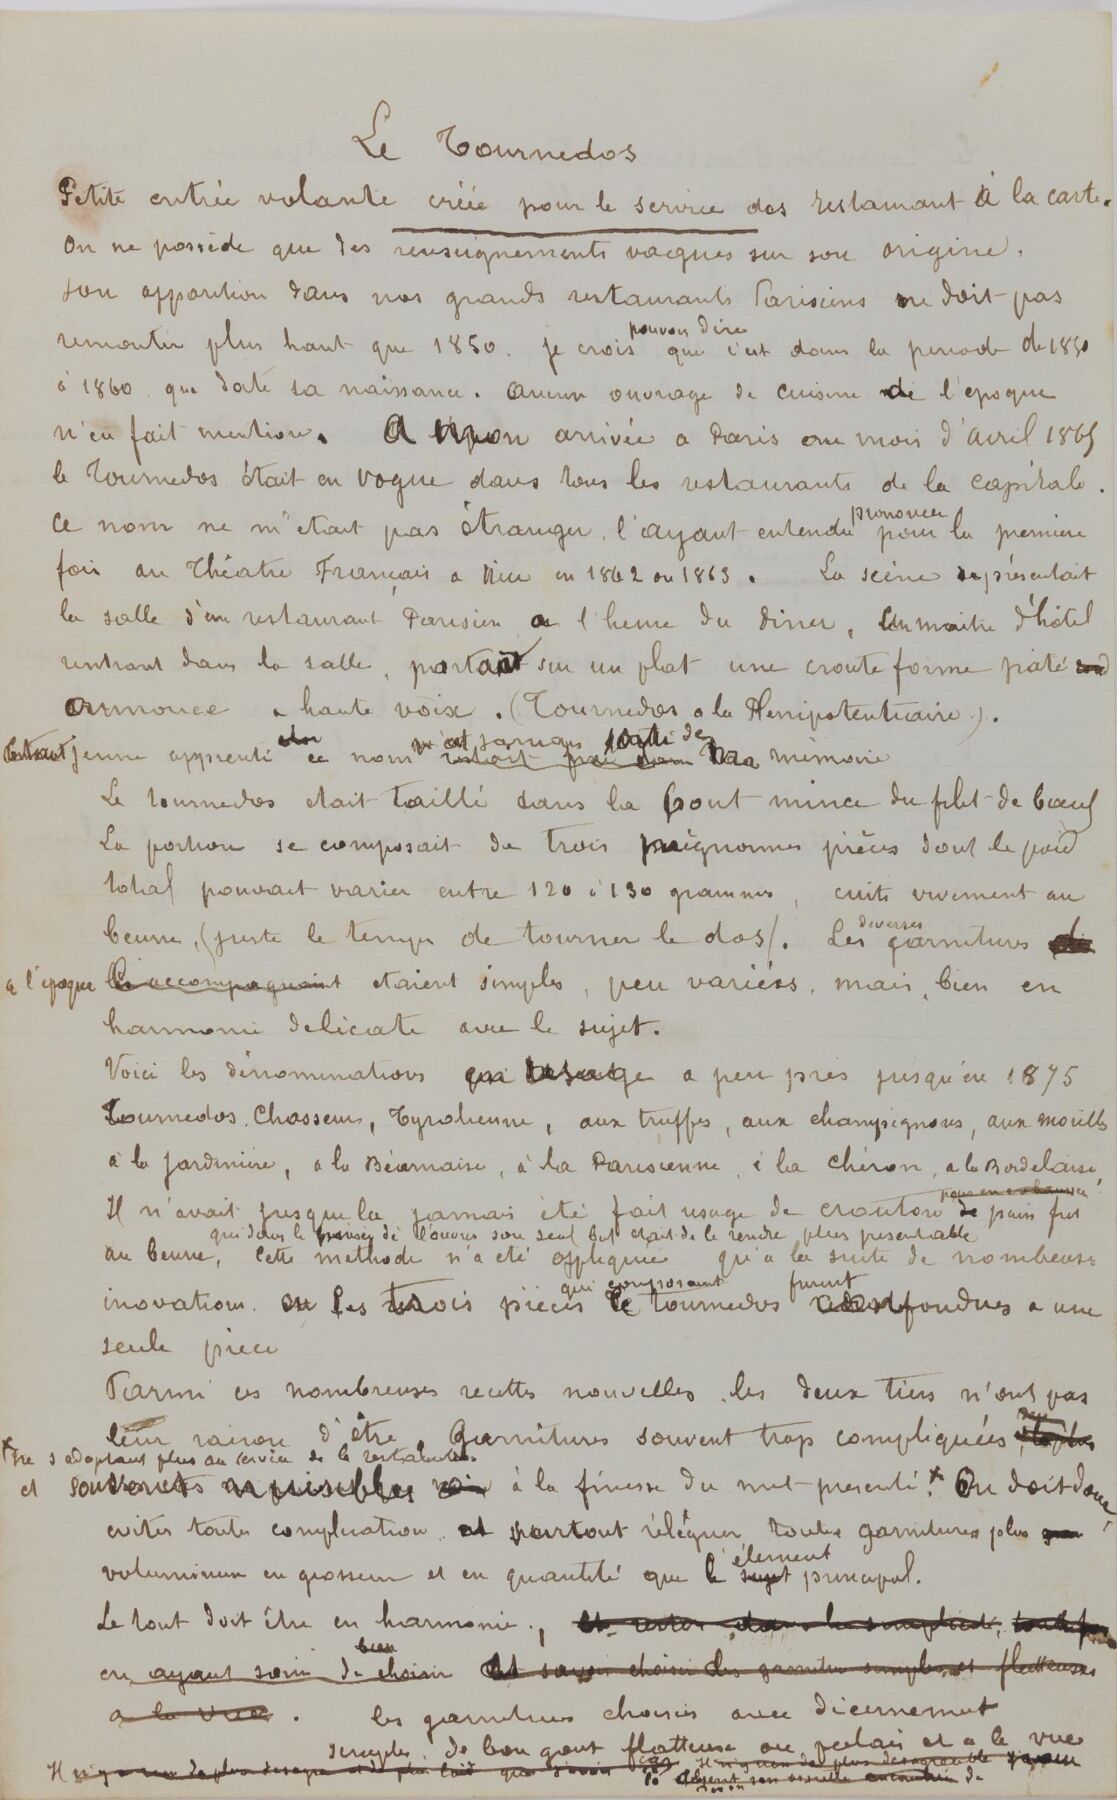 Le Tournedos
Petite entrée volante créée pour le service des restaurant à la carte.
On ne possède que des renseignements vagues sur son origine.
son apparition dans nos grands restaurants Parisiens ne doit pas
pouvoir dire
remonter plus haut que 1850. je crois que c'est dans la periode de 1850
à 1860 que date sa naissance. aucun ouvrage de cuisine de l'epoque
n'en fait mention. A mon arrivée a Paris au mois d'avril 1865
le Tournedos était en vogue dans tous les restaurants de la capitale.
prononcer
Ce nom ne m'etait pas étranger, l'ayant entendu pour la premiere
fois au Théatre Français a Nice en 1862 ou 1863. La scène représentait
la salle d'un restaurant Parisien a l'heure du diner, Un maitre d'hôtel
rentrant dans la salle, portant sur un plat une croute forme paté
annonce a haute voix. (Tournedos a la Plenipotentiaire).
n'est jamais sorti de
jeune apprenti ce nom ma mémoire
Le tournedos etait taillé dans la pont mince du filet de bœuf
La portion se composait de trois mignonnes pièces dont le poid
total pouvait varier entre 120 à 130 grammes, cuits vivement au
diverses
beurre, (juste le temps de tourner le dos). Les garnitures
a l'epoque les accompagnant etaient simples, peu variées, mais, bien en
harmonie delicate avec le sujet.
Voici les dénominations en usage a peu près jusqu'en 1875
Tournedos Chasseur, Tyrolienne, aux truffes, aux champignons, aux morilles
à la jardinière, a la Béarnaise, à la Parisienne, à la Chéron, a la Bordelaise,
Il n'avait jusque la jamais été fait usage de crouton de pain frit
qui dans le de l'œuvre son seul but etait de le rendre plus presentable
au beurre, Cette methode n'a été appliquée qu'a la suite de nombeuses
qui composaient furent
inovations. Les trois pièces le tournedos confondues a une
seule piece
Parmi ces nombreuses recettes nouvelles, les deux tiers n'ont pas
leur raison d'être, Garnitures souvent trop compliquées
ne s'adaptant plus au service de la restauration
et nuisibles à la finesse du met presenté. On doit donc
eviter toutes complication et surtout réléguer toutes garnitures plus
élement
volumineux en grosseur et en quantité que le sujet principal.
Le tout doit être en harmonie., et rester dans la simplicité,
bien
en ayant soin de choisir et savoir choisir des garnitures simples et flatteuses
a la vue. les garnitures choisies avec dicernement
simples, de bon gout flatteuse au palais et a la vue
Il n'y a rien de plus